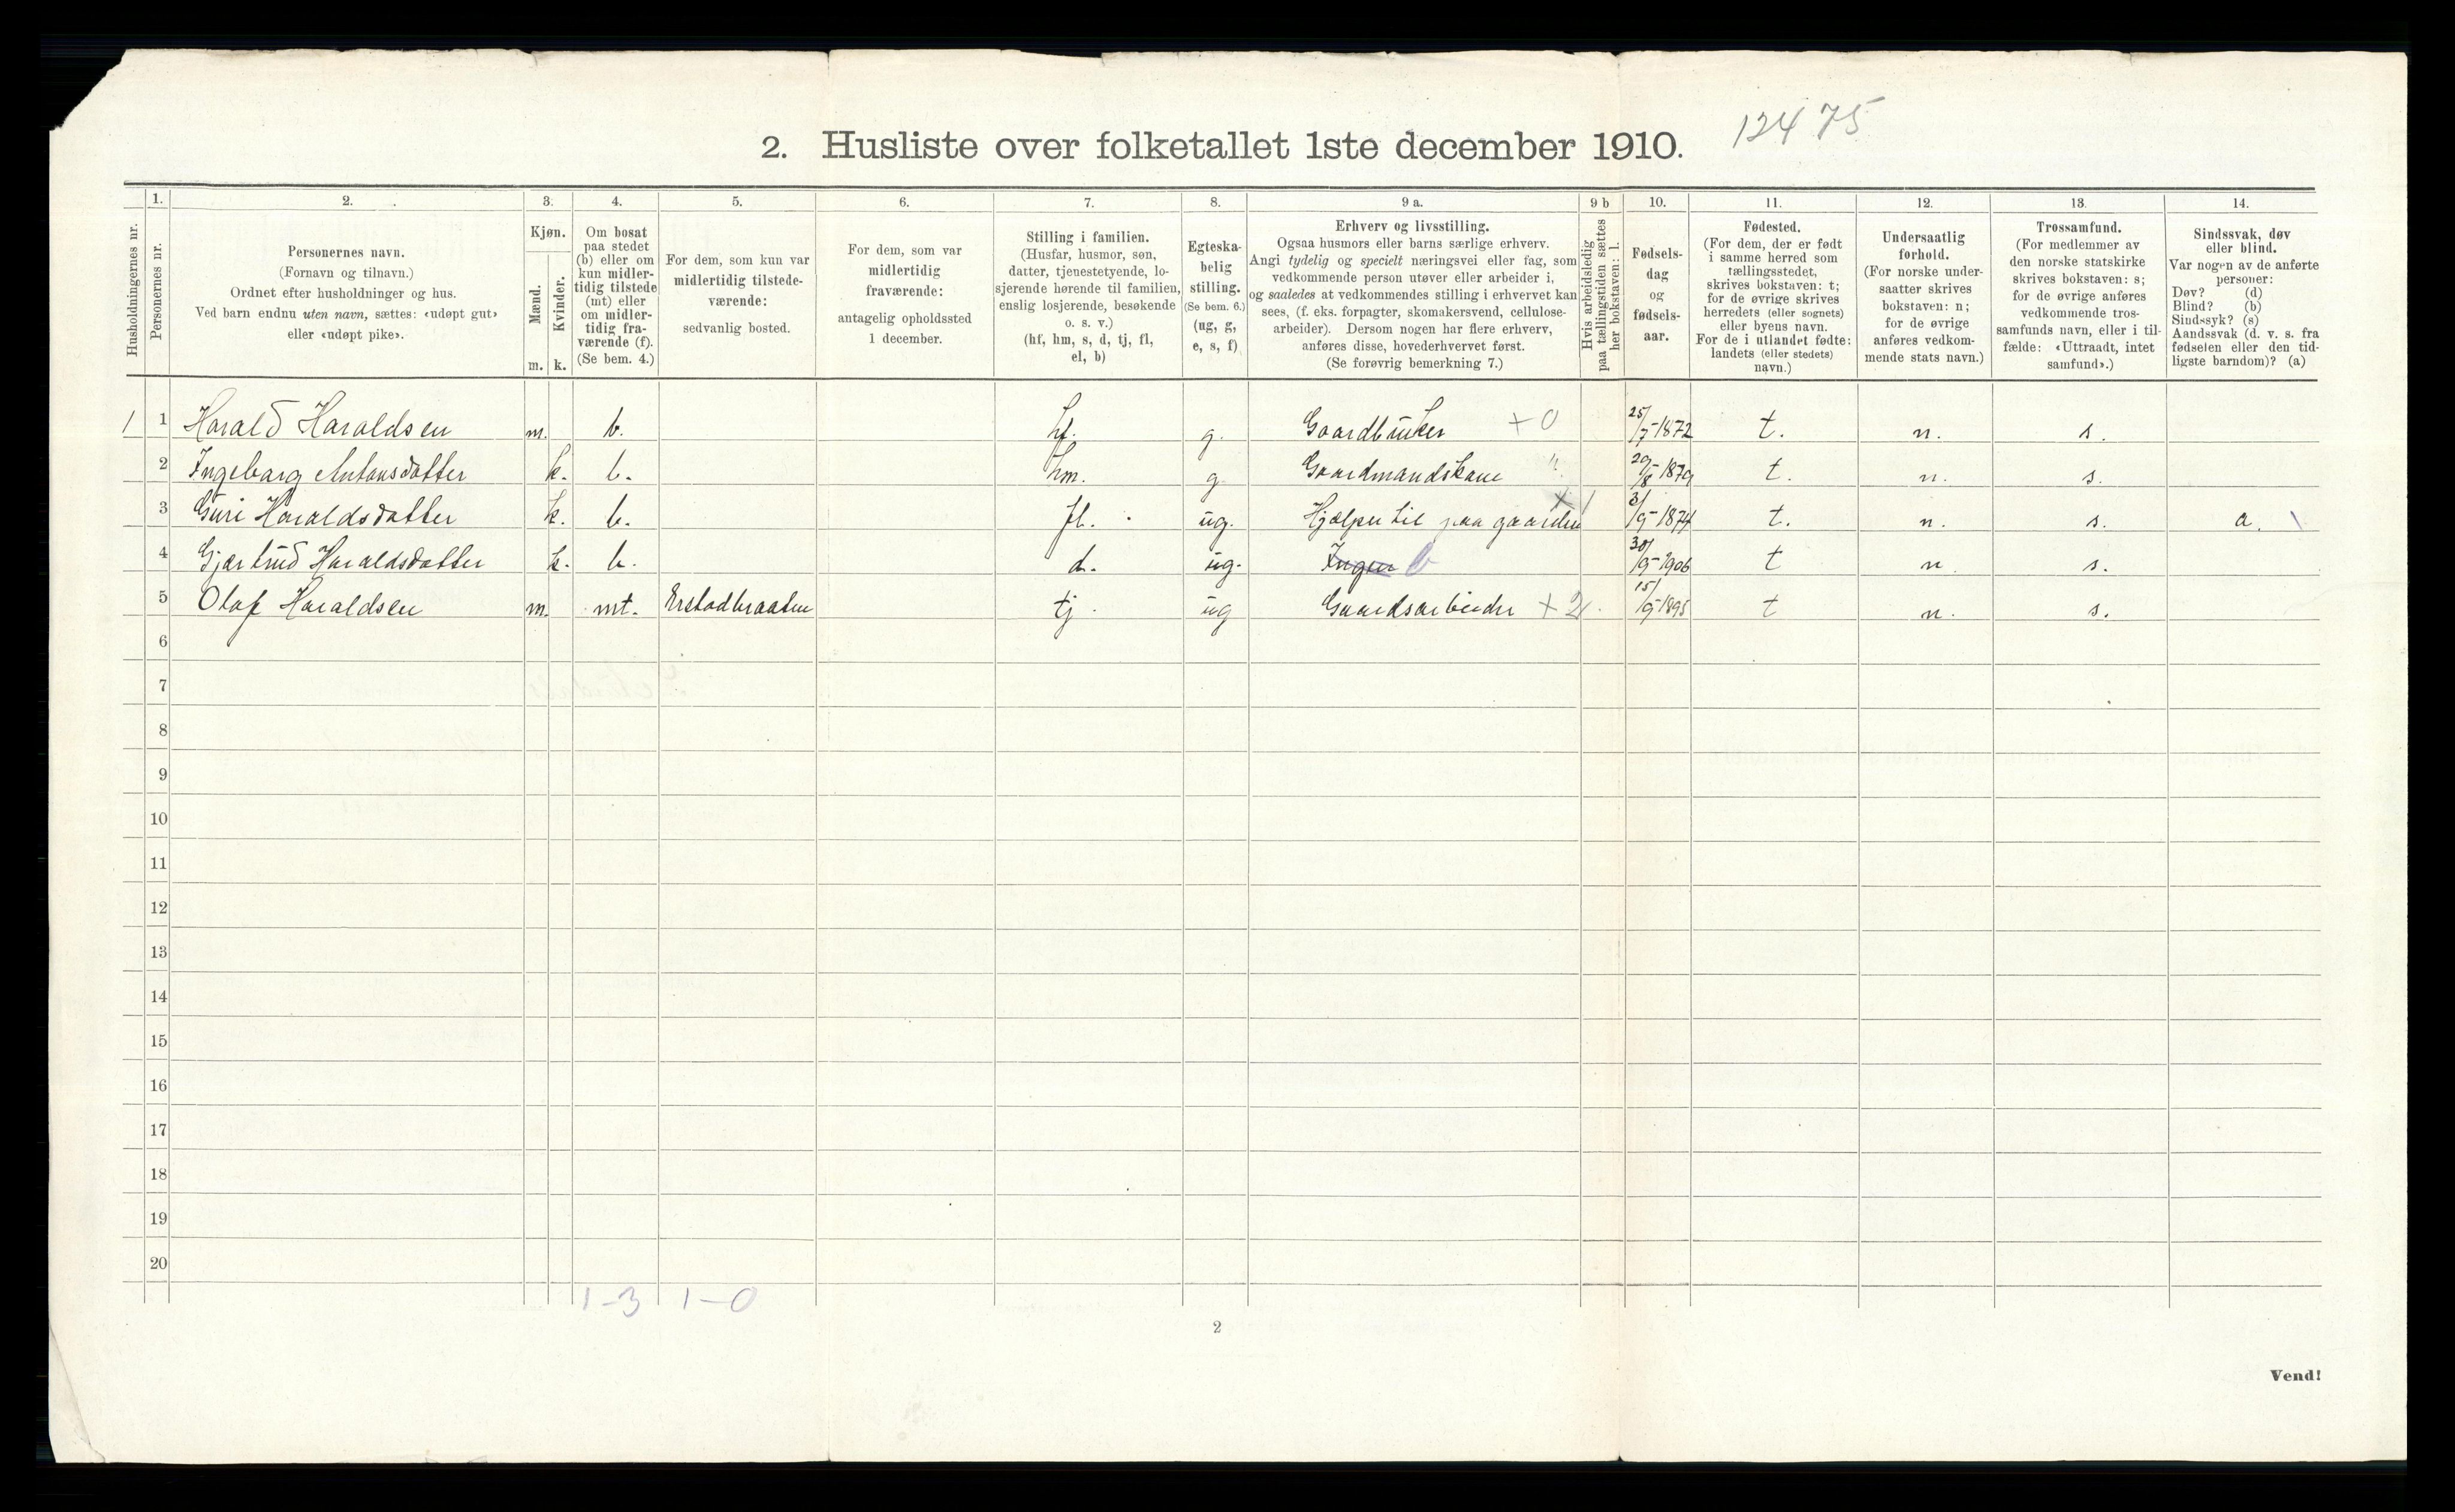 12475
2. Husliste over folketallet 1ste december 1910.
Husholdningernes nr.
1.
Personernes nr.
2.
Personernes navn.
(Fornavn og tilnavn.)
Ordnet efter husholdninger og hus.
Ved barn endnu uten navn, sættes: «udøpt gut»
eller «udøpt pike».
3.
Kjøn.
Mænd.
m.
Kvinder.
k.
4.
Om bosat
paa stedet
(b) eller om
kun midler-
tidig tilstede
(mt) eller
om midler-
tidig fra-
værende (f).
(Se bem. 4.)
5.
For dem, som kun var
midlertidig tilstede-
værende:
sedvanlig bosted.
6.
For dem, som var
midlertidig
fraværende:
antagelig opholdssted
1 december.
7.
Stilling i familien.
(Husfar, husmor, søn,
datter, tjenestetyende, lo-
sjerende hørende til familien,
enslig losjerende, besøkende
o. s. v.)
(hf, hm, s, d, tj, fl,
el, b)
8.
Egteska-
belig
stilling.
(Se bem. 6.)
(ug, g,
e, s, f)
9 a.
Erhverv og livsstilling.
Ogsaa husmors eller barns særlige erhverv.
Angi tydelig og specielt næringsvei eller fag, som
vedkommende person utøver eller arbeider i,
og saaledes at vedkommendes stilling i erhvervet kan
sees, (f. eks. forpagter, skomakersvend, cellulose-
arbeider). Dersom nogen har flere erhverv,
anføres disse, hovederhvervet først.
(Se forøvrig bemerkning 7.)
9 b
Hvis arbeidsledig
paa tællingstiden sættes
her bokstaven: l.
10.
Fødsels-
dag
og
fødsels-
aar.
11.
Fødested.
(For dem, der er født
i samme herred som
tællingsstedet,
skrives bokstaven: t;
for de øvrige skrives
herredets (eller sognets)
eller byens navn.
For de i utlandet fødte:
landets (eller stedets)
navn.)
12.
Undersaatlig
forhold.
(For norske under-
saatter skrives
bokstaven: n;
for de øvrige
anføres vedkom-
mende stats navn.)
13.
Trossamfund.
(For medlemmer av
den norske statskirke
skrives bokstaven: s;
for de øvrige anføres
vedkommende tros-
samfunds navn, eller i til-
fælde: «Uttraadt, intet
samfund».)
14.
Sindssvak, døv
eller blind.
Var nogen av de anførte
personer:
Døv? (d)
Blind? (b)
Sindssyk? (s)
Aandssvak (d. v. s. fra
fødselen eller den tid-
ligste barndom)? (a)
1 1 Harald Haraldsen m. b. hf. g. Gaardbruker +0 25/7-1872 t. n. s.
2 Ingeborg Antonsdatter k. b. hm. g Gaardmandskone " 29/8 1879 t. n. s.
3 Guri Haraldsdatter k. b. fl. ug. Hjælper til paa gaarden + 1 3/9-1874 t. n. s. a. \
4 Gjærtrud Haraldsdatter k. b. d. ug. Ingen b 30/9-1906 t n. s.
5 Olaf Haraldsen m. mt. Erstadbraaten tj. ug Gaardsarbeider +2 15/9-1895 t n. s.
6
7
8
9
10
11
12
13
14
15
16
17
18
19
20
1-3 1-0
2
Vend!